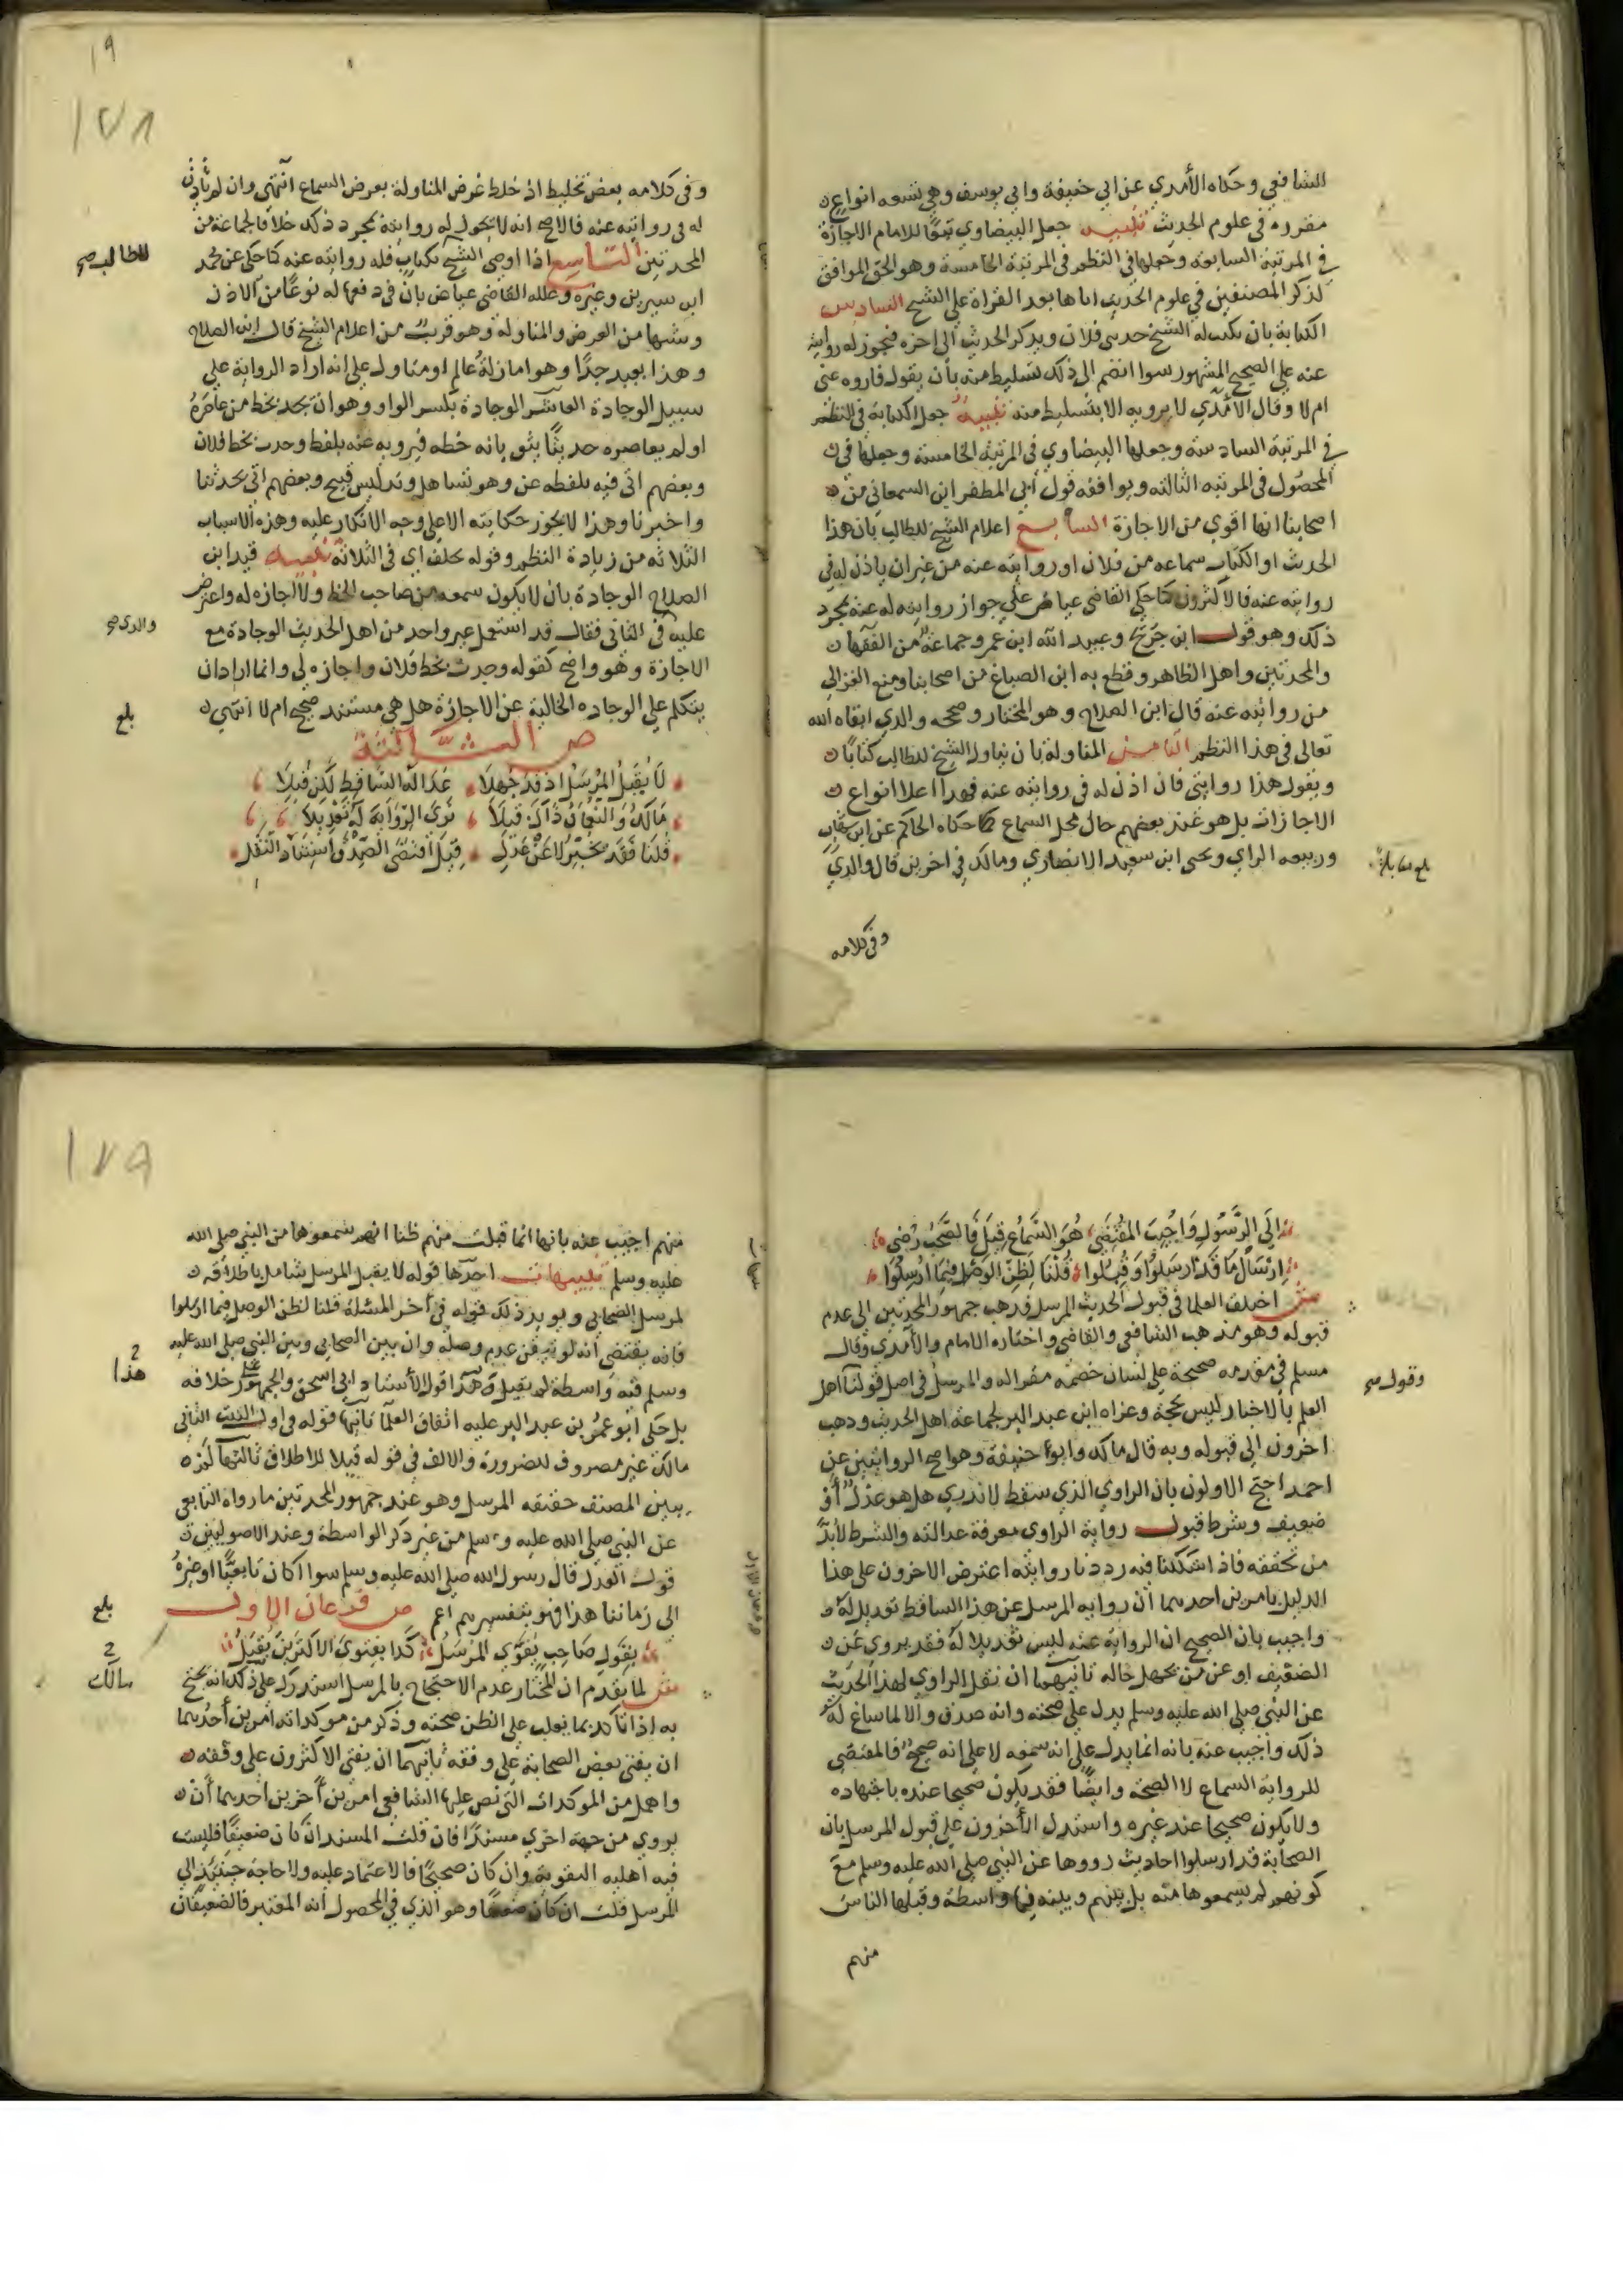 الشافعي وحكاه الأمدي عن ابي حنيفة وابي يوسف وهي تسعه انواع
مقرره في علوم الحديث تنبيه جعل البيضاوي تبعًا للامام الاجازة
في المرتبة السابعه وجعلها في النظم في المرتبة الخامسة وهو الحق الموافق
لذكر المصنفين في علوم الحديث اياها بعد القراة علي الشيخ السادس
الكتابة بان يكتب له الشيخ حدثني فلان ويذكر الحديث الي اخره فيجوز له روايته
عنه علي الصحيح المشهور سوا انضم الي ذلك تسليط منه بأن يقول فاروه عني
ام لا وقال الأمدي لا يرويه الا بتسليط منه تنبيه جعل الكتابة في النظم
في المرتبة السادسة وجعلها البيضاوي في المرتبة الخامسة وجعلها في
المحصول في المرتبه الثالثه ويوافقه قول أبي المظفر ابن السمعاني من
اصحابنا انها اقوي من الاجازة السابع اعلام الشيخ للطالب بأن هذا
الحديث او الكتاب سماعه من فلان او روايته عنه من غير ان ياذن له في
روايته عنه فالاكثرون كما حكي القاضي عياض علي جواز روايته له عنه بمجرد
ذلك وهو قول ابن جريج وعبيد الله ابن عمر وجماعة من الفقها
والمحدثين واهل الظاهر وقطع به ابن الصباغ من اصحابنا ومنع الغزالي
من روايته عنه قال ابن الصلاح وهو المختار وصححه والدي ابقاه الله
تعالي في هذا النظم الثامن المناولة بان يناول الشيخ للطالب كتابًا
ويقول هذا روايتي فان اذن له في روايته عنه فهذا اعلا انواع
الاجازات بل هو عند بعضهم حال محل السماع كما حكاه الحاكم عن ابن شهاب
وربيعه الراي ويحيي ابن سعيد الانصاري ومالك في اخرين قال والدي
بلغ مقابلة
وفي كلامه
١٩
١٧٨
وفي كلامه بعض تخليط اذ خلط عرض المناولة بعرض السماع انتهي وان لم ياذن
له في روايته عنه فالاصح انه لا يجوز له روايته بمجرد ذلك خلافا لجماعة من
المحدثين التاسع اذا اوصي الشيخ بكتاب فله روايته عنه كما حكي عن محمد
للطالب صح
ابن سيرين وغيره وعلله القاضي عياض بان في دفعها له نوعًا من الاذن
وشبها من العرض والمناولة وهو قريب من اعلام الشيخ قال ابن الصلاح
وهذا بعيد جدًا وهو اما زلة عالم او متاول علي انه اراد الرواية علي
سبيل الوجادة العاشر الوجادة بكسر الواو وهو ان يجد بخط من عاصره
او لم يعاصره حديثًا يثق بانه خطه فيرويه عنه بلفظ وجدت بخط فلان
وبعضهم اتي فيه بلفظه عن وهو تساهل وتدليس قبيح وبعضهم اتي بحدثنا
واخبرنا وهذا لا يجوز حكايته الا علي وجه الانكار عليه وهذه الاسباب
الثلاثه من زيادة النظم وقوله يحلف اي في الثلاثة تنبيه قيد ابن
الصلاح الوجادة بان لا يكون سمعه من صاحب الخط ولا اجازه له واعترض
عليه في الثاني فقال قد استعمل غير واحد من اهل الحديث الوجادة مع
والدي صح
الاجازة وهو واضح كقوله وجدت بخط فلان واجازه لي وانما اراد ان
يتكلم علي الوجاده الخالية عن الاجازة هل هي مستند صحيح ام لا انتهي
بلغ
ص الثالثة
لا يقبل المرسل اذ قد جهلا عدالة الساقط لكن قبلا
مالك والنعمان ذاك قبلا نري الرواية له تعديلا
قلنا فقد يخبر لا عن عدل قيل اقتضي الصدق واستناد النقل
الي الرسول واجيب المقتضي هو السماع قيل فالصحب رضي
ارسال ما قد ارسلوا وقبلوا قلنا لظن الوصل فيما ارسلوا
ش اختلف العلما في قبول الحديث المرسل فذهب جمهور المحدثين الي عدم
قبوله وهو مذهب الشافعي والقاضي واختاره الامام والأمدي وقال
مسلم في مقدمه صحيحة علي لسان خصمه مقرا له والمرسل في اصل قولنا اهل
وقول صح
العلم بالاخبار ليس بحجة وعزاه ابن عبد البر لجماعة اهل الحديث وذهب
اخرون الي قبوله وبه قال مالك وابو حنيفة وهو اصح الروايتين عن
احمد احتج الاولون بان الراوي الذي سقط لا ندري هل هو عدل أو
ضعيف وشرط قبول رواية الراوي معرفة عدالته والشرط لا بد
من تحققه فاذا شككنا فيه رددنا روايته اعترض الاخرون علي هذا
الدليل بامرين احدهما أن رواية المرسل عن هذا الساقط تعديل له
واجيب بان الصحيح ان الرواية عنه ليس تعديلا له فقد يروي عن
الضعيف او عن من يجهل حاله ثانيهما ان نقل الراوي لهذا الحديث
عن النبي صلي الله عليه وسلم يدل علي صحته وانه صدق والا لما ساغ له
ذلك واجيب عنه بانه انما يدل علي انه سمعه لا علي انه صحيح فالمقتضي
للرواية السماع لا الصحة وايضًا فقد يكون صحيحا عنده باجتهاده
ولا يكون صحيحا عند غيره واستدل الأخرون علي قبول المرسل بان
الصحابة قد ارسلوا احاديث رووها عن النبي صلي الله عليه وسلم مع
كونهم لم يسمعوها منه بل بينهم وبينه فيها واسطة وقبلها الناس
منهم
١٧٩
منهم اجيب عنه بانها انما قبلت منهم ظنا انهم سمعوها من النبي صلي الله
عليه وسلم تنبيهات احدها قوله لا يقبل المرسل شامل باطلاقه
لمرسل الصحابي ويويد ذلك قوله في آخر المسئلة قلنا لظن الوصل فيما ارسلوا
فانه يقتضي أنه لو تيقن عدم وصله وان بين الصحابي وبين النبي صلي الله عليه
وسلم فيه واسطة لم يقبل وهذا قول الأستاذ ابي اسحق والجمهور علي خلافه
هذا
بل حكي ابو عمر بن عبد البر عليه اتفاق العلما ثانيها قوله واول البيت الثاني
مالك غير مصروف للضرورة والالف في قوله قبلا للاطلاق ثالثها لم
يبين المصنف حقيقه المرسل وهو عند جمهور المحدثين ما رواه التابعي
عن النبي صلي الله عليه وسلم من غير ذكر الواسطة وعند الاصوليين
قول العدل قال رسول الله صلي الله عليه وسلم سوا كان تابعيًا او غيره
الي زماننا هذا فهو بتفسيرهم اعم ص فرعان الاول
بلغ
بقول صاحب يقوي المرسل كذا بفتوي الاكثرين يقبل
ش لما يقدم ان المختار عدم الاحتجاج بالمرسل استدرك علي ذلك انه يحتج
به اذا تاكد بما يغلب علي الظن صحته وذكر من موكداته امرين أحدهما
ان يفتي بعض الصحابة علي وفقه ثانيهما ان يفتي الاكثرون علي وفقه
واهمل من الموكدات التي نص عليها الشافعي امرين أخرين احدهما أن
يروي من جهة اخري مسندًا فان قلت المسند ان كان ضعيفًا فليست
فيه اهليه التقوية وان كان صحيحًا فالاعتماد عليه ولا حاجة حينئذ الي
المرسل قلت ان كان ضعيفا وهو الذي في المحصول أنه المعتبر فالضعيفان